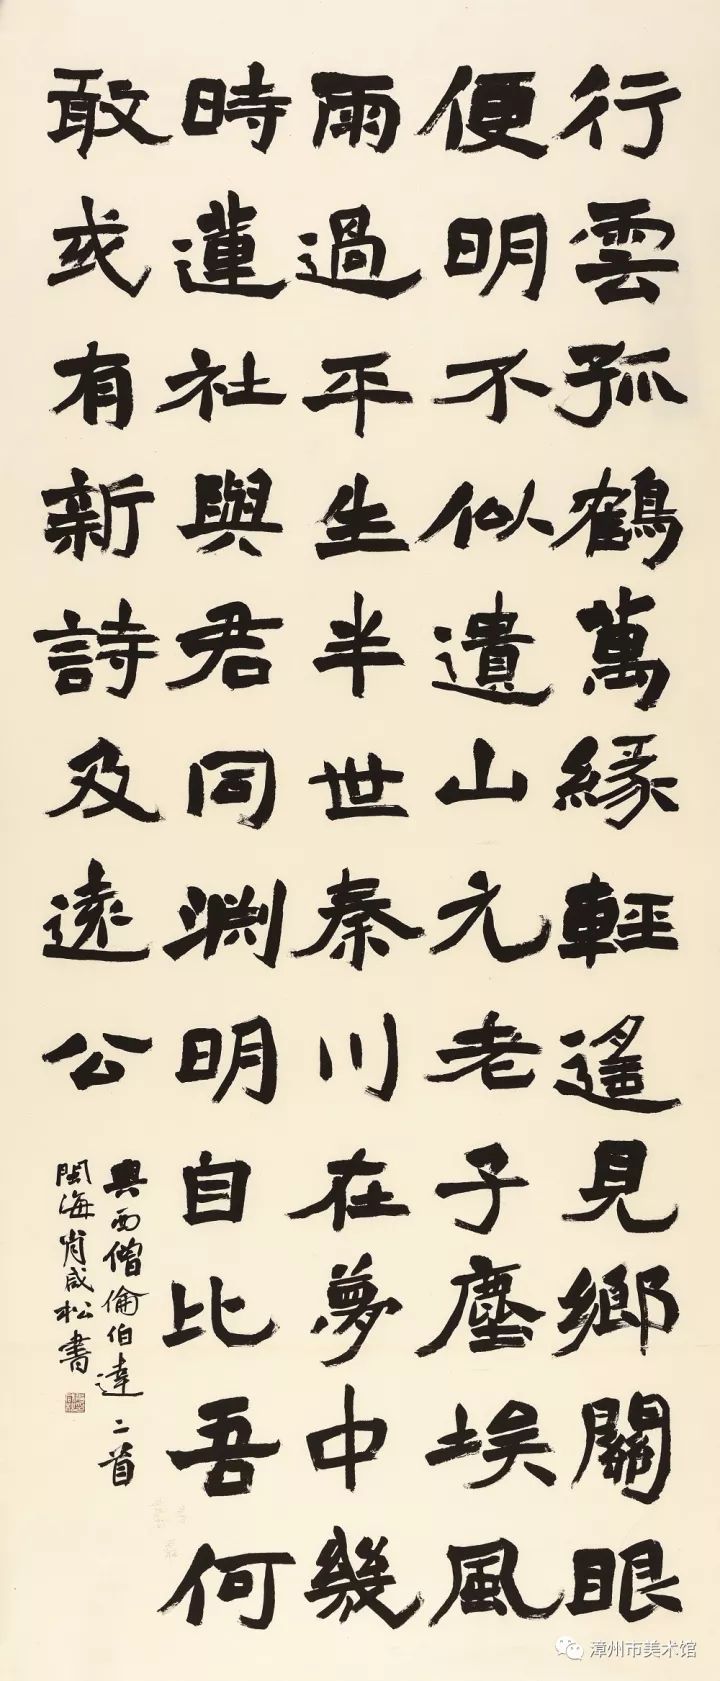 行雲孤鶴萬緣輕遥見鄉關眼
便明不似遺山元老子塵埃風
雨過平生半世秦川在夢中幾
時蓮社與君同淵明自比吾何
敢或有新詩及遠公
與西僧倫伯達二首
閩海肖咸松書
漳州市美术馆